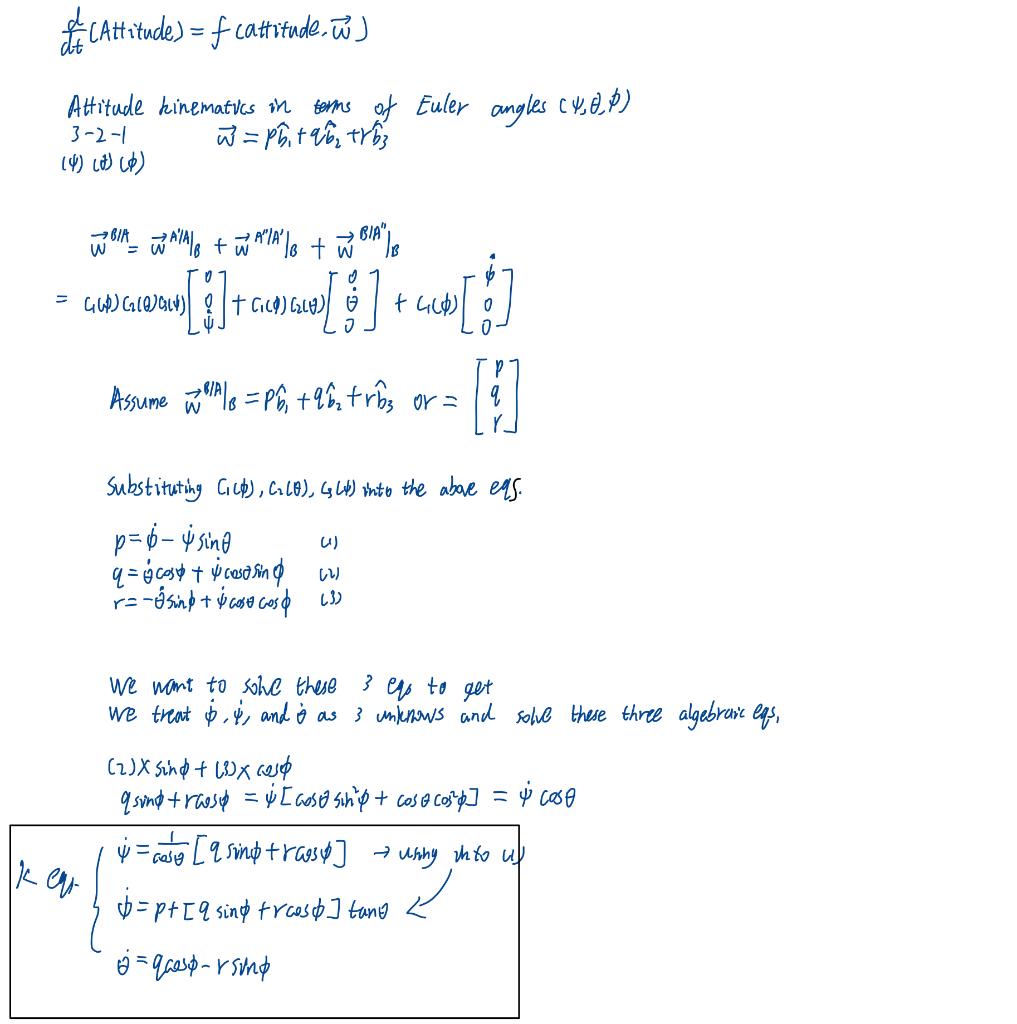 d/dt (Attitude) = f (attitude, w⃗)
Attitude kinematics in terms of Euler angles (ψ, θ, ϕ)
3-2-1 w⃗ = pb̂₁ + qb̂₂ + rb̂₃
(ψ) (θ) (ϕ)
w⃗^B/A = w⃗^A'/A|_B + w⃗^A''/A'|_B + w⃗^B/A''|_B
= C₁(ϕ) C₂(θ) C₃(ψ) [0 0 ψ̇] + C₁(ϕ) C₂(θ) [0 θ̇ 0] + C₁(ϕ) [ϕ̇ 0 0]
Assume w⃗^B/A|_B = pb̂₁ + qb̂₂ + rb̂₃ or = [p q r]
Substituting C₁(ϕ), C₂(θ), C₃(ψ) into the above eqs.
p = ϕ̇ - ψ̇ sinθ (1)
q = θ̇ cosϕ + ψ̇ cosθ sinϕ (2)
r = -θ̇ sinϕ + ψ̇ cosθ cosϕ (3)
We want to solve these 3 eqs to get
We treat ϕ̇, ψ̇, and θ̇ as 3 unknows and solve these three algebraic eqs,
(2) × sinϕ + (3) × cosϕ
q sinϕ + r cosϕ = ψ̇ [cosθ sin²ϕ + cosθ cos²ϕ] = ψ̇ cosθ
ψ̇ = 1/cosθ [q sinϕ + r cosϕ] → using into (1)
K eqs
ϕ̇ = p + [q sinϕ + r cosϕ] tanθ
θ̇ = q cosϕ - r sinϕ